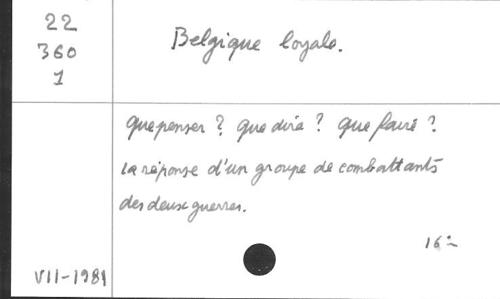 22
360
1
Belgique loyale.
Que penser ? Que dire ? Que faire ?
La réponse d'un groupe de combattants
des deux guerres.
16°
VII-1981